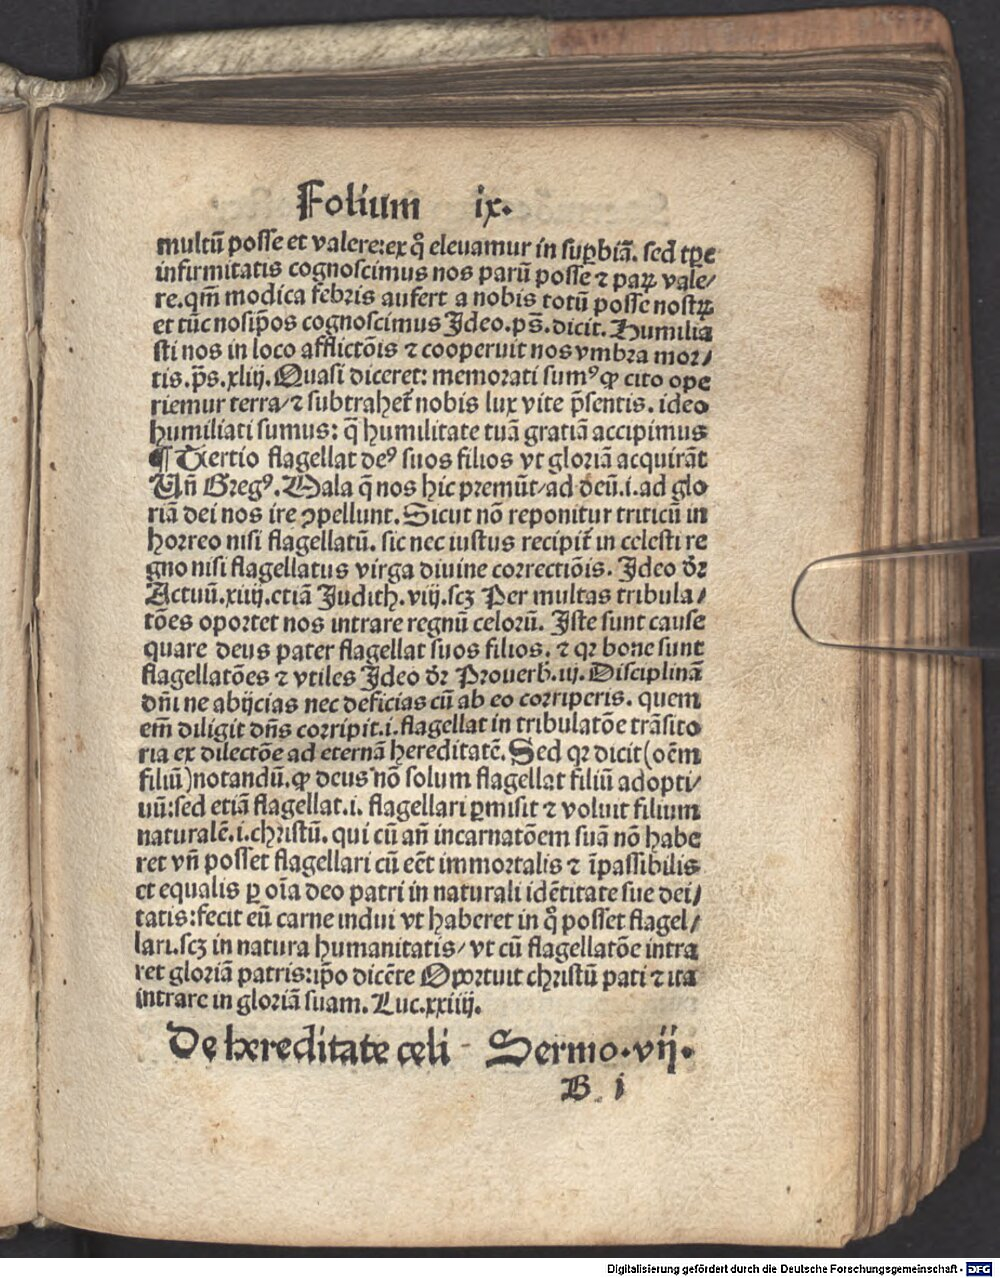 Folium ix.
multū posse et valere: ex q̊ eleuamur in suꝑbiā. sed tꝑe
infirmitatis cognoscimus nos parū posse ⁊ paꝝ vale/
re. qm̄ modica febris aufert a nobis totū posse nostꝝ
et tūc nosip̄os cognoscimus Ideo. ps̄. dicit. Humilia
sti nos in loco afflictōis ⁊ cooperuit nos vmbra mor/
tis. ps̄. xliij. Quasi diceret: memorati sumꝰ ꝙ cito ope
riemur terra/ ⁊ subtrahet̄ nobis lux vite p̄sentis. ideo
humiliati sumus: q̄ humilitate tuā gratiā accipimus
¶ Tertio flagellat deꝰ suos filios vt gloriā acquirāt
Vn̄ Gregꝰ. Mala q̄ nos hic premūt/ ad deū .i. ad glo
riā dei nos ire ꝯpellunt. Sicut nō reponitur triticū in
horreo nisi flagellatū. sic nec iustus recipit̄ in celesti re
gno nisi flagellatus virga diuine correctiōis. Ideo dr̄
Actuū. xiiij. etiā Judith. viij. scꝫ Per multas tribula/
tōes oportet nos intrare regnū celorū. Iste sunt cause
quare deus pater flagellat suos filios. ⁊ qꝛ bone sunt
flagellatōes ⁊ vtiles Ideo dr̄ Prouerb̄. iij. Disciplinā
dn̄i ne abijcias nec deficias cū ab eo corriperis. quem
em̄ diligit dn̄s corripit .i. flagellat in tribulatōe trāsito
ria ex dilectōe ad eternā hereditatē. Sed qꝛ dicit (oēm
filiū) notandū. ꝙ deus nō solum flagellat filiū adopti/
uū: sed etiā flagellat .i. flagellari ꝑmisit ⁊ voluit filium
naturalē .i. christū. qui cū an̄ incarnatōem suā nō habe
ret vn̄ posset flagellari cū eēt immortalis ⁊ īpassibilis
et equalis ꝑ oīa deo patri in naturali idētitate sue dei/
tatis: fecit eū carne indui vt haberet in q̊ posset flagel/
lari. scꝫ in natura humanitatis/ vt cū flagellatōe intra
ret gloriā patris: ip̄o dicēte Oportuit christū pati ⁊ ita
intrare in gloriā suam. Luc. xxiiij.
De hereditate celi - Sermo. vij.
B i
Digitalisierung gefördert durch die Deutsche Forschungsgemeinschaft - DFG